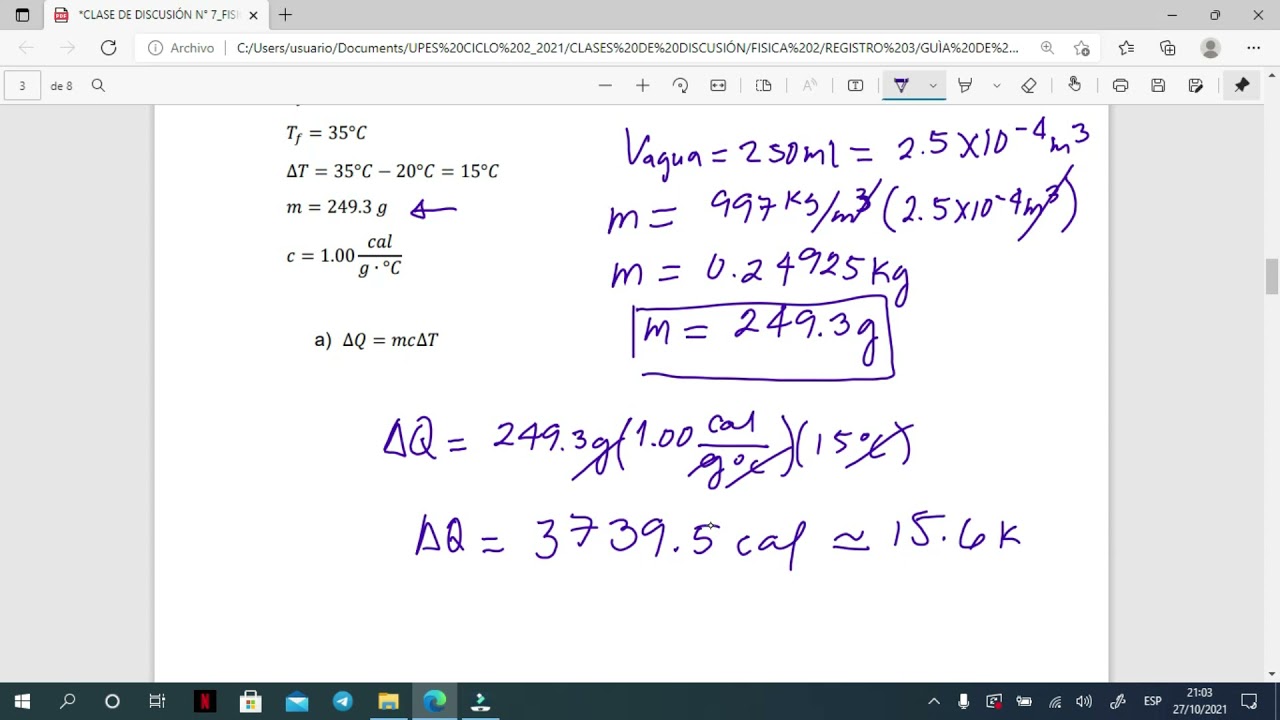 *CLASE DE DISCUSIÓN N° 7_FISI
Archivo
C:/Users/usuario/Documents/UPES%20CICLO%202_2021/CLASES%20DE%20DISCUSIÓN/FISICA%202/REGISTRO%203/GUÌA%20DE%2...
3 de 8
T_f = 35°C
ΔT = 35°C − 20°C = 15°C
m = 249.3 g
c = 1.00 cal/g·°C
a) ΔQ = mcΔT
Vagua = 250ml = 2.5X10⁻⁴m³
m = 997 Kg/m³ (2.5X10⁻⁴m³)
m = 0.24925kg
m = 249.3g
ΔQ = 249.3g(1.00 cal/g°c)(15°c)
ΔQ = 3739.5 cal ≃ 15.6 K
ESP
21:03
27/10/2021